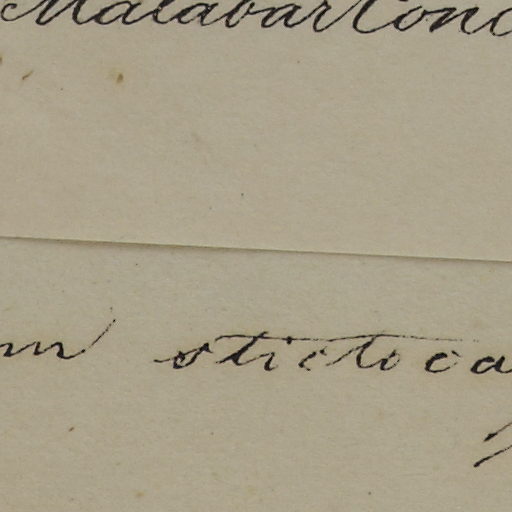 Malabar Conc
m stictoca